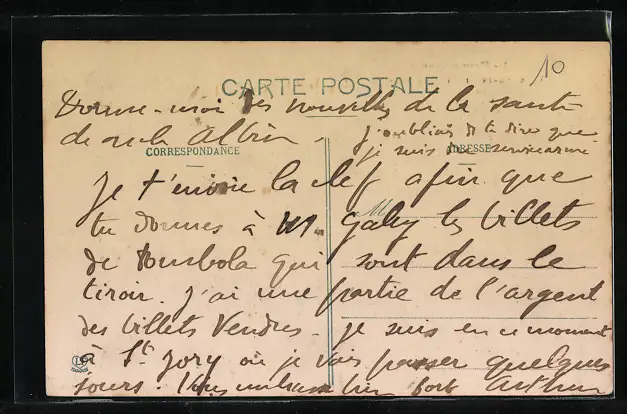 10
CARTE POSTALE
Donne-moi des nouvelles de la santé
de oncle Albin -
j'oubliais de te dire que
je suis service armé
CORRESPONDANCE
ADRESSE
Je t'envoie la clef afin que
tu donnes à M. Galey les billets
de Tombola qui sont dans le
tiroir. J'ai une partie de l'argent
des billets Vendres. je suis en ce moment
à St Jory où je vais passer quelques
jours. Vous embrasse bien fort Arthur